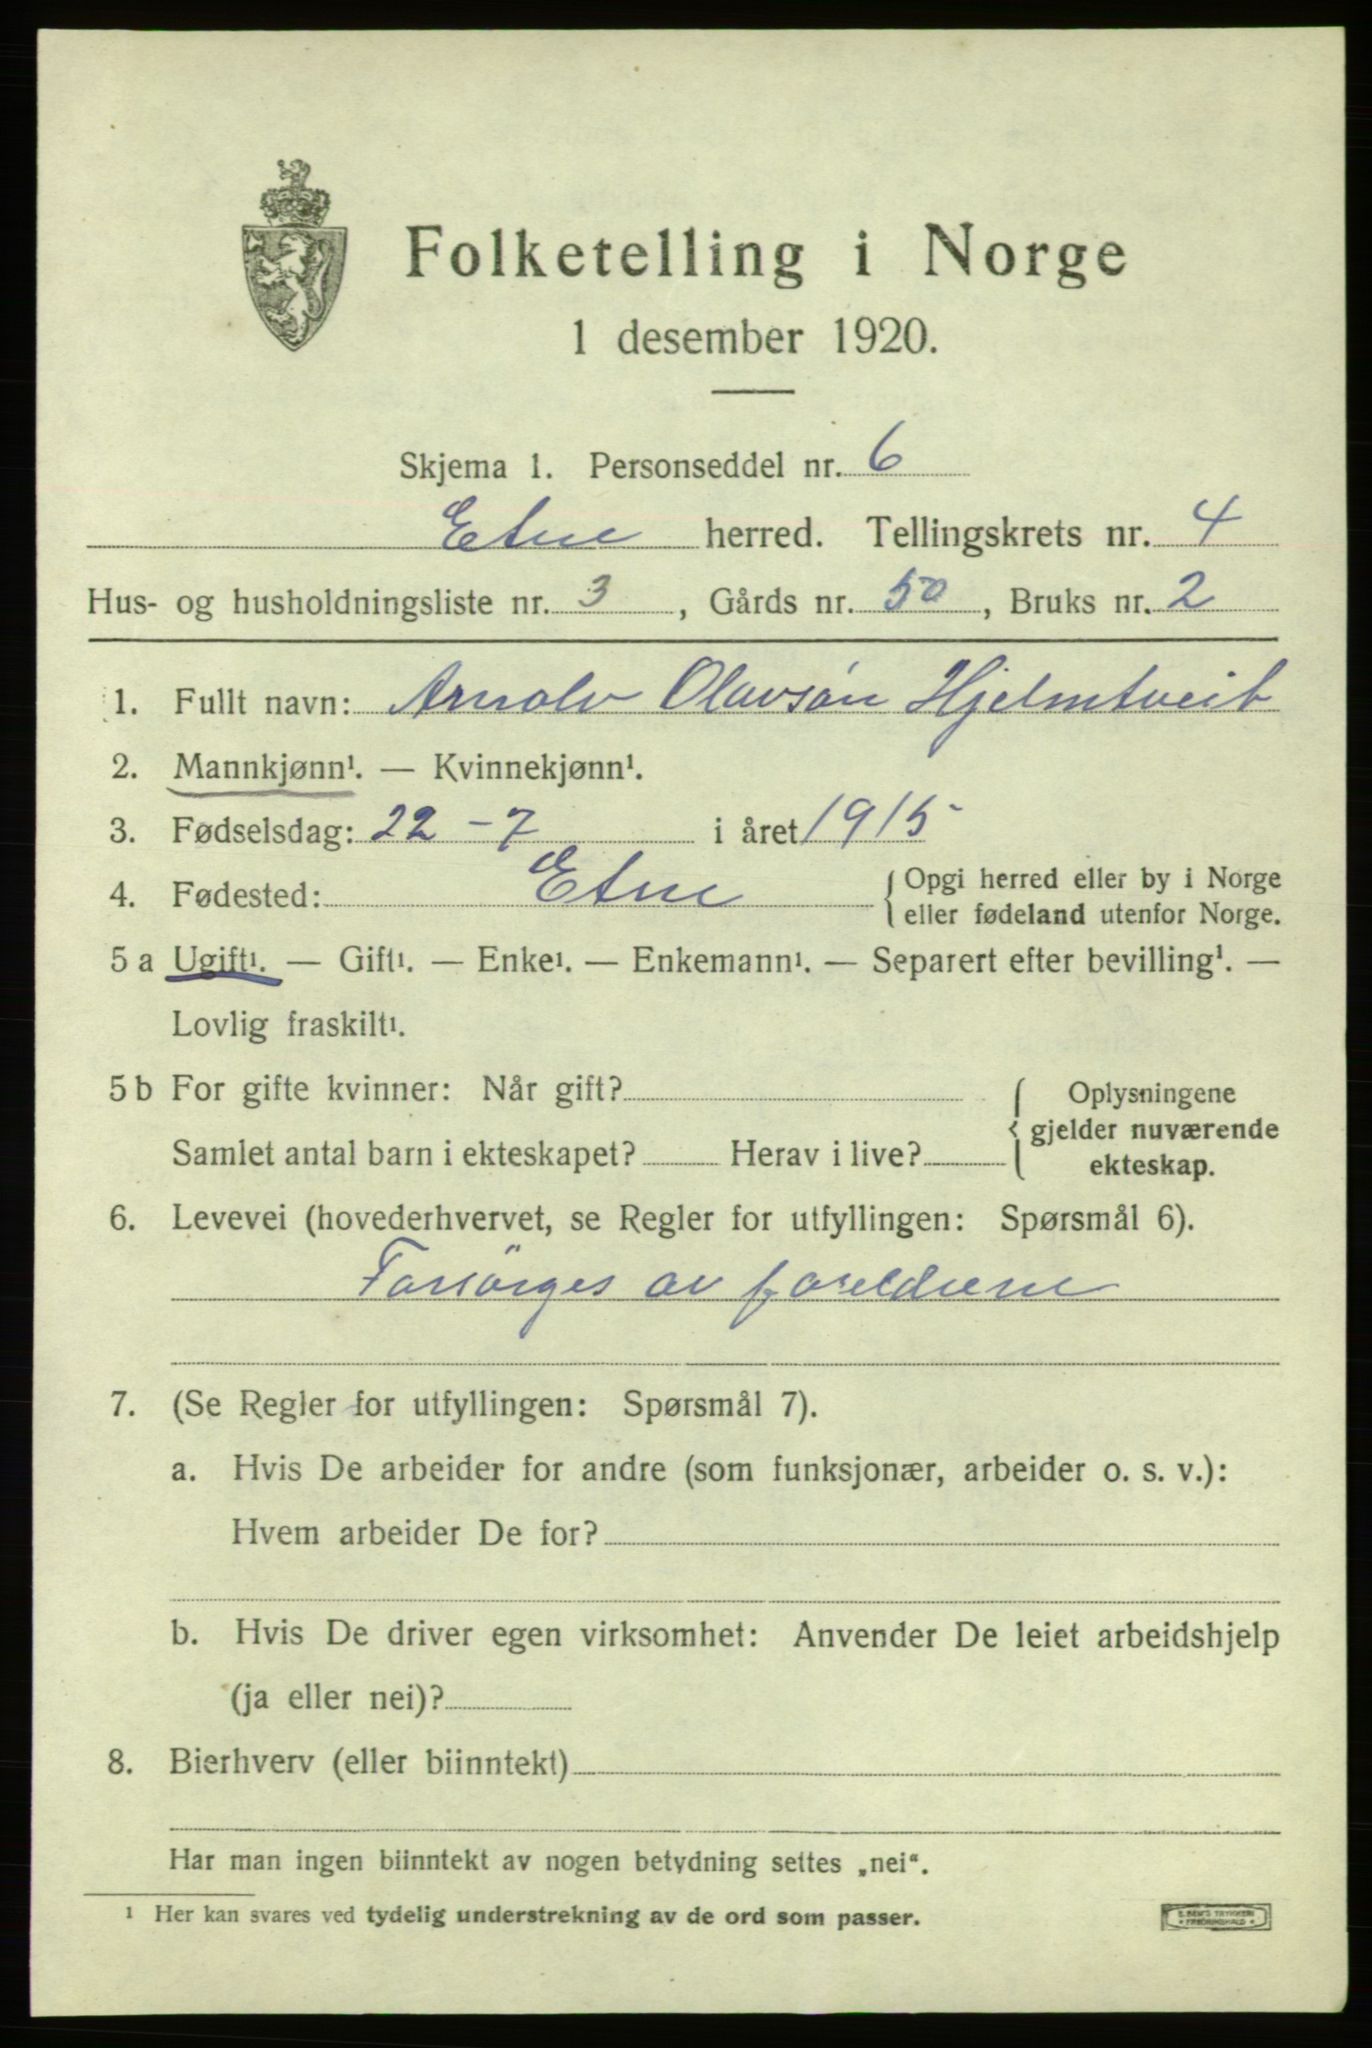 Folketelling i Norge
1 desember 1920.
Skjema 1. Personseddel nr. 6
Etne herred. Tellingskrets nr. 4
Hus- og husholdningsliste nr. 3, Gårds nr. 50, Bruks nr. 2
1. Fullt navn: Arnolv Olavsön Hjelmtveit
2. Mannkjønn¹. — Kvinnekjønn¹.
3. Fødselsdag: 22 - 7 i året 1915
4. Fødested: Etne {Opgi herred eller by i Norge
eller fødeland utenfor Norge.
5 a Ugift¹. — Gift¹. — Enke¹. — Enkemann¹. — Separert efter bevilling¹. —
Lovlig fraskilt¹.
5 b For gifte kvinner: Når gift? { Oplysningene
gjelder nuværende
Samlet antal barn i ekteskapet? Herav i live?
ekteskap.
6. Levevei (hovederhvervet, se Regler for utfyllingen: Spørsmål 6).
Forsörges av foreldrene
7. (Se Regler for utfyllingen: Spørsmål 7).
a. Hvis De arbeider for andre (som funksjonær, arbeider o. s. v.):
Hvem arbeider De for?
b. Hvis De driver egen virksomhet: Anvender De leiet arbeidshjelp
(ja eller nei)?
8. Bierhverv (eller biinntekt)
Har man ingen biinntekt av nogen betydning settes „nei“.
¹ Her kan svares ved tydelig understrekning av de ord som passer.